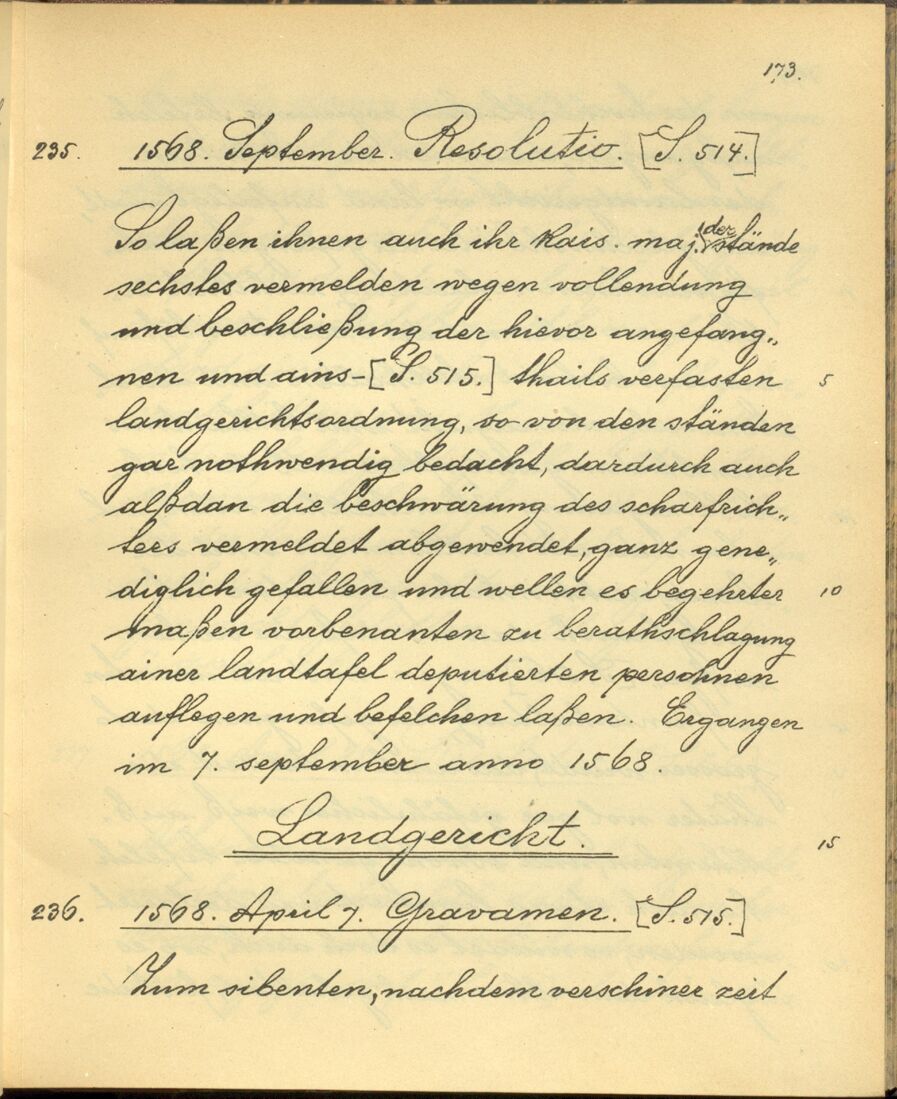 173.
235. 1568. September. Resolutio. [S. 514.]
So laßen ihnen auch ihr kais. maj. der stände
sechstes vermelden wegen vollendung
und beschließung der hievor angefang„
nen und ains-[S. 515.] thails verfasten 5
landgerichtsordnung, so von den ständen
gar nothwendig bedacht, dardurch auch
alßdan die beschwärung des scharfrich„
ters vermeldet abgewendet, ganz gene„
diglich gefallen und wellen es begehrter 10
maßen vorbenanten zu berathschlagung
ainer landtafel deputierten persohnen
auflegen und befelchen laßen. Ergangen
im 7. september anno 1568.
Landgericht. 15
236. 1568. April 7. Gravamen. [S. 515.]
Zum sibenten, nachdem verschiner zeit